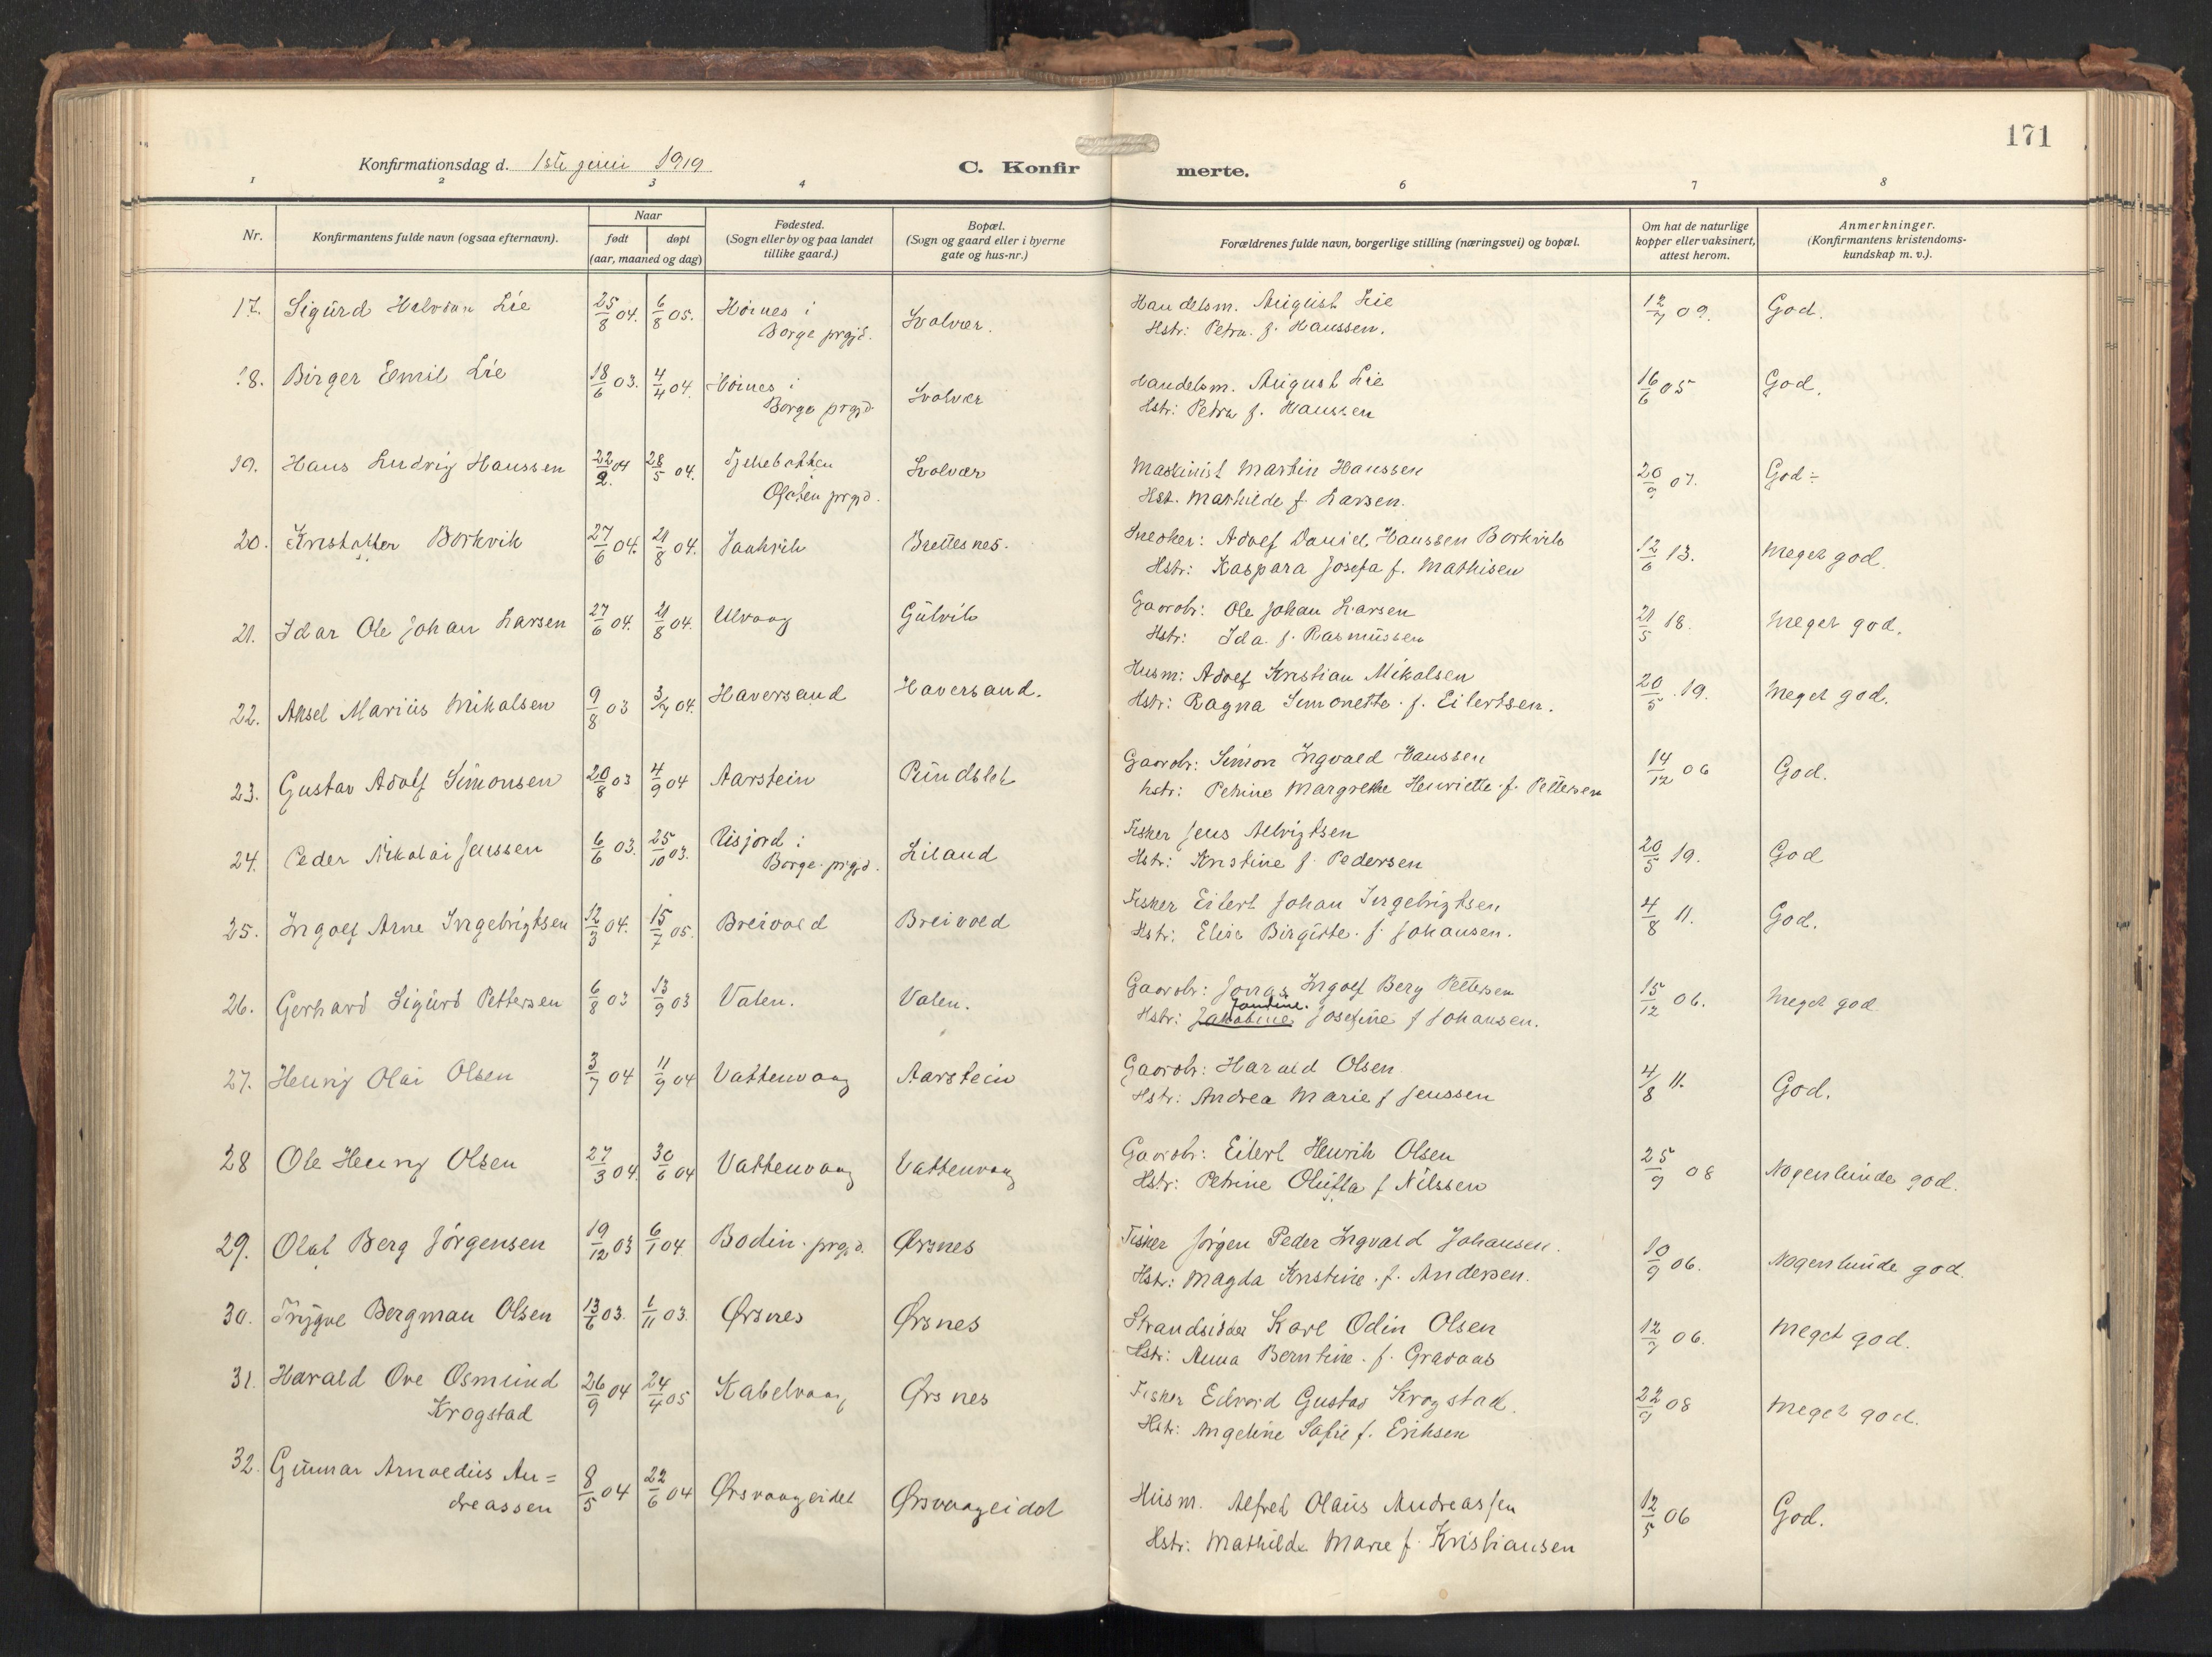 171
Konfirmationsdag d. 1ste juni 1919
C. Konfirmerte.
1 2 3 4 6 7 8
Nr.
Konfirmantens fulde navn (ogsaa efternavn).
Naar
født døpt
(aar, maaned og dag)
Fødested.
(Sogn eller by og paa landet
tillike gaard.)
Bopæl.
(Sogn og gaard eller i byerne
gate og hus-nr.)
Forældrenes fulde navn, borgerlige stilling (næringsvei) og bopæl.
Om hat de naturlige
kopper eller vaksinert,
attest herom.
Anmerkninger.
(Konfirmantens kristendoms-
kundskap m. v.).
17. Sigurd Halvdan Lie 25/8 04. 6/8 05. Høines i Svolvær. Handelsm. August Lie 12/7 09. God.
Borge prgjd. Hstr: Petra f. Hanssen.
18. Birger Emil Lie 18/6 03. 4/4 04. Høines i Svolvær Handelsm. August Lie 16/6 05 God.
Borge prgjd. Hstr: Petra f. Hanssen
19. Hans Ludvig Hanssen 22/2. 04 28/5 04. Svolvær Maskinist Martin Hanssen 20/9 07. God ÷
prgjd. Hst. Mathilde f. Larsen.
20. Kristoffer Borkvik 27/6 04. 21/8 04. Brettesnes. Snedker: Adolf Daniel Hanssen Borkvik 12/6 13. Meget god.
Hstr: Kaspara Josefa f. Mathisen
21. Idar Ole Johan Larsen 27/6 04. 21/8 04. Ulvaag Gulvik Gaardbr: Ole Johan Larsen 21/5 18. Meget god.
Hstr: Ida f. Rasmussen
22. Aksel Marius Mikalsen 9/8 03 3/7 04. Haversand Haversand. Husm: Adolf Kristian Mikalsen 20/5 19. Meget god.
Hstr: Ragna Simonette f. Eilertsen.
23. Gustav Adolf Simonsen 20/8 03 4/9 04 Aarstein Pundslet Gaardbr: Simon Ingvald Hanssen 14/12 06 God.
hstr: Petrine Margrethe Henriette f. Pettersen
24. Peder Nikolai Jenssen 6/6 03. 25/10 03. Risjord i Liland Fisker Jens Albrigtsen 20/5 19. God
Borge prgjd. Hstr: Kristine f. Pedersen
25. Ingolf Arne Ingebrigtsen 12/3 04. 15/7 05. Breivold Breivold Fisker Eilert Johan Ingebrigtsen 4/8 11. God.
Hstr: Elise Birgitte f. Johansen.
26. Gerhard Sigurd Pettersen 6/8 03 13/9 03 Valen. Valen. Gaardbr: Jonas Ingolf Berg Pettersen 15/12 06. Meget god
Jandine.
Hstr: Jakobine Josefine f Johansen.
27. Henry Olai Olsen 3/7 04 11/9 04 Vattenvaag Aarstein Gaardbr: Harald Olsen 4/8 11. God.
Hstr: Andrea Marie f Jenssen
28 Ole Henry Olsen 27/3 04. 30/6 04 Vattenvaag Vattenvaag Gaardbr: Eilert Henrik Olsen 25/9 08 Nogenlunde god.
Hstr: Petrine Oluffa f Nilssen
29. Olaf Berg Jørgensen 19/12 03 6/1 04 Bodin prgjd. Ørsnes Fisker Jørgen Peder Ingvald Johansen. 10/9 06. Nogenlunde god.
Hstr: Magda Kristine f. Andersen.
30. Trygve Bergman Olsen 13/6 03. 1/11 03. Ørsnes Ørsnes Strandsidder Karl Odin Olsen 12/7 06. Meget god.
Hstr: Anna Berntine f. Gravaas
31. Harald Ove Osmund 26/9 04 24/4 05 Kabelvaag Ørsnes Fisker Edvard Gustav Krogstad. 22/9 08 Meget god.
Krogstad Hstr: Angeline Sofie f. Eriksen
32. Gunnar Arnoldus An= 8/5 04 22/6 04 Ørsvaageidet Ørsvaageidet Husm. Alfred Olaus Andreassen 12/5 06 God.
dreassen Hstr: Mathilde Marie f. Kristiansen